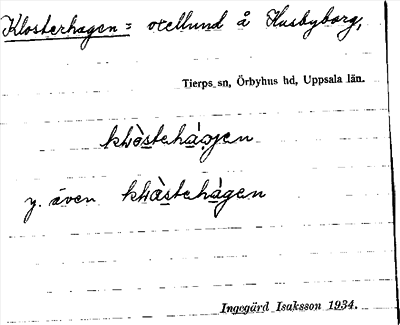 Klosterhagen = otellund å Husbyborg,
Tierps sn, Örbyhus hd, Uppsala län.
y. även
Ingegärd Isaksson 1934.